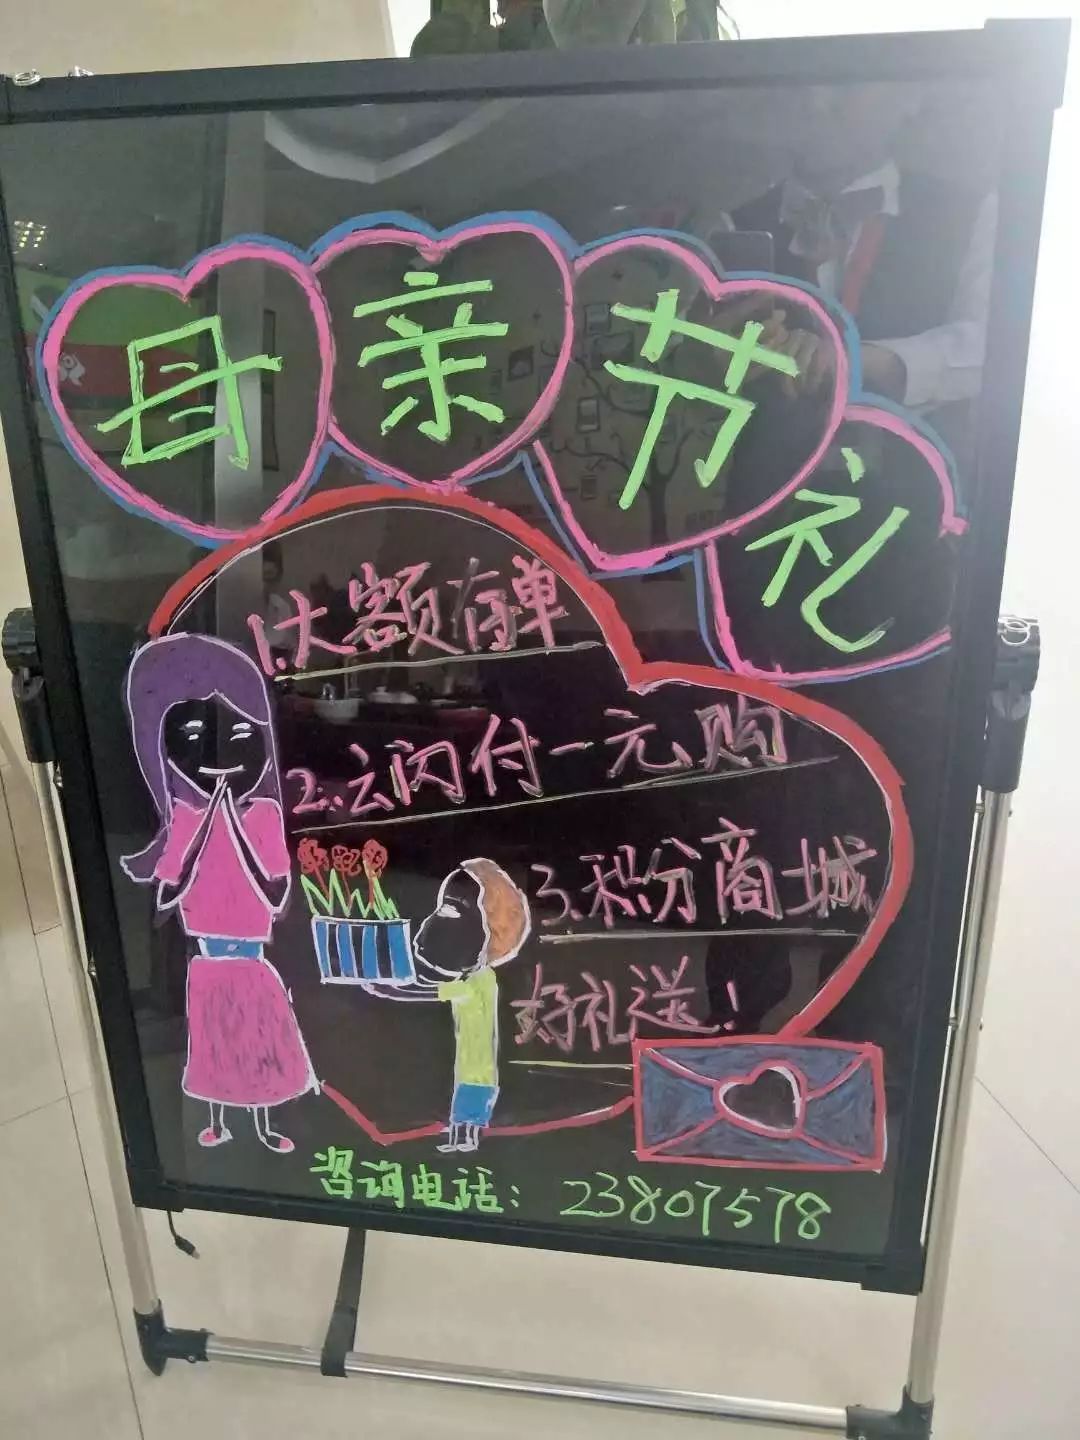 母亲节礼
1.大额存单
2.云闪付一元购
3.积分商城
好礼送!
咨询电话:23807578